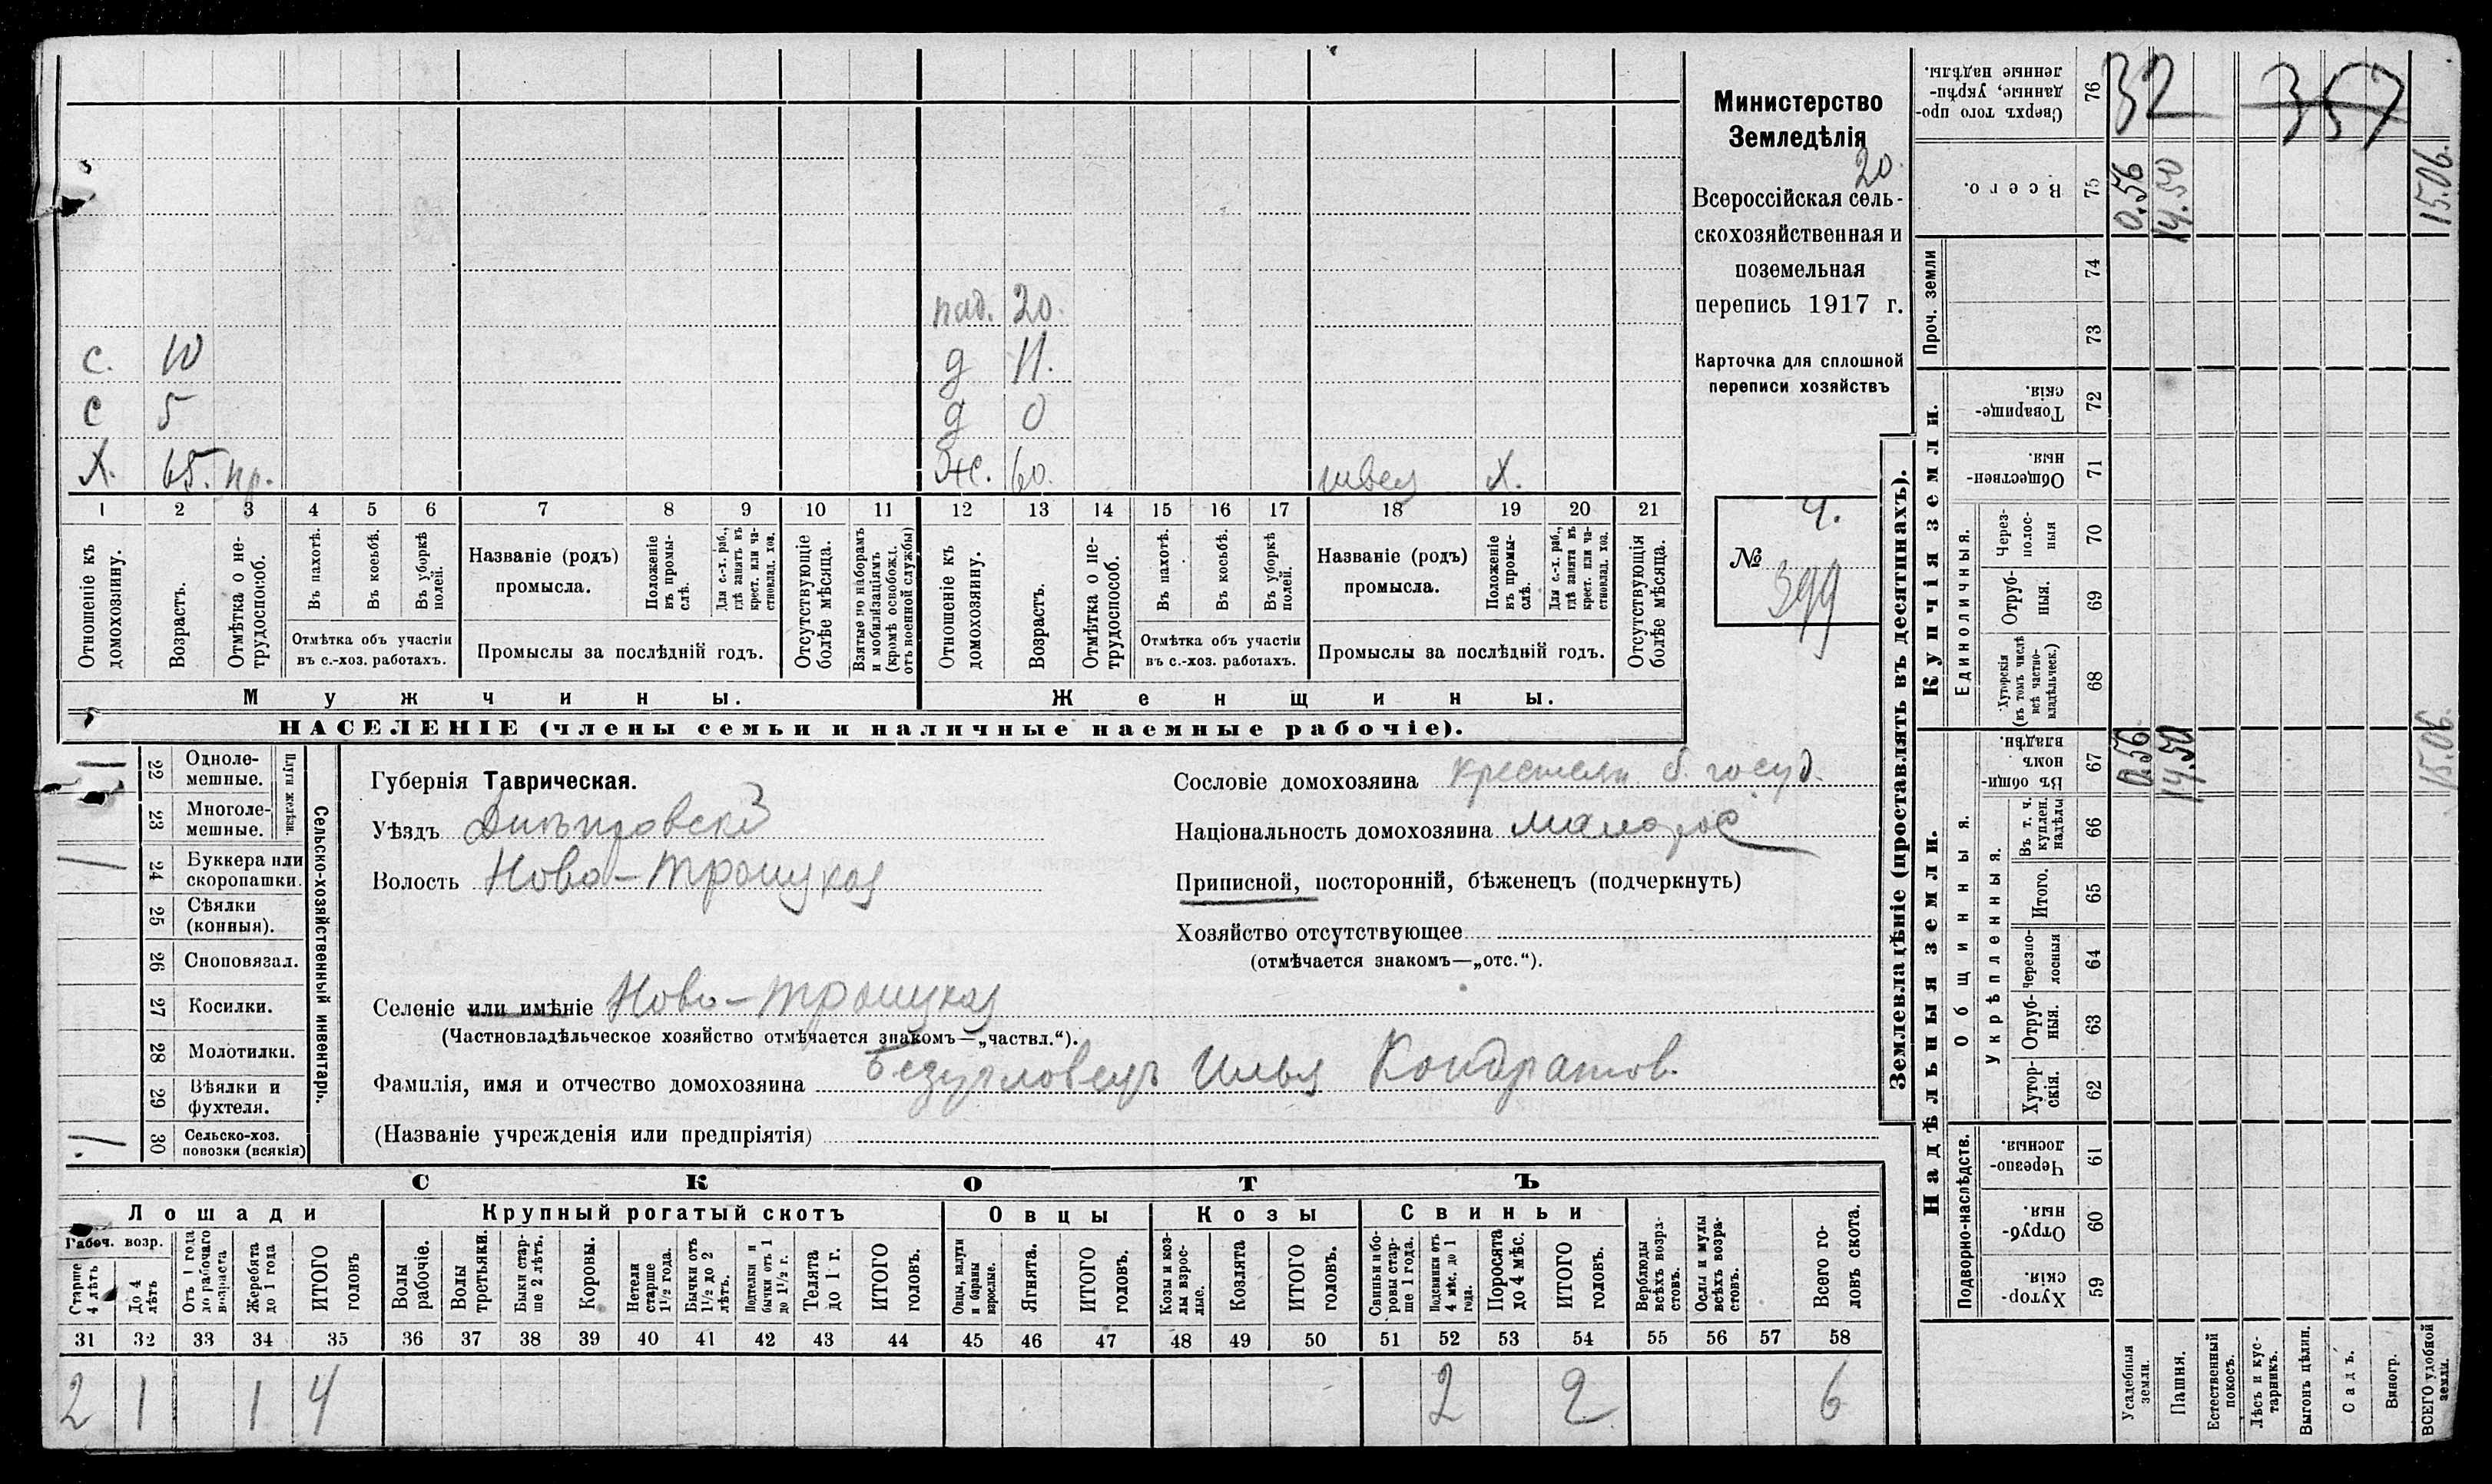 Министерство
Земледѣлія
20.
Всероссійская сель-
скохозяйственная и
поземельная
перепись 1917 г.
Карточка для сплошной
переписи хозяйствъ
4.
№
399
пад. 20.
с. 10 д 11.
с 5 д 0
Х. 65. пр. Ж. 60. швея Х.
1 2 3 4 5 6 7 8 9 10 11 12 13 14 15 16 17 18 19 20 21
Отношеніе къ домохозяину.
Возрастъ.
Отмѣтка о не-трудоспособ.
Въ пахотѣ.
Въ косьбѣ.
Въ уборкѣ полей.
Отмѣтка объ участіи
въ с.-хоз. работахъ.
Названіе (родъ)
промысла.
Положеніе въ промы-слѣ.
Для с.-х. раб., гдѣ занятъ въ крест. или ча-стновлад. хоз.
Промыслы за послѣдній годъ.
Отсутствующіе болѣе мѣсяца.
Взятые по наборамъ и мобилизаціямъ (кромѣ освобожд. отъ военной службы)
Отношеніе къ домохозяину.
Возрастъ.
Отмѣтка о не-трудоспособ.
Въ пахотѣ.
Въ косьбѣ.
Въ уборкѣ полей.
Отмѣтка объ участіи
въ с.-хоз. работахъ.
Названіе (родъ)
промысла.
Положеніе въ промы-слѣ.
Для с.-х. раб., гдѣ занята въ крест. или ча-стновлад. хоз.
Промыслы за послѣдній годъ.
Отсутствующія болѣе мѣсяца.
Мужчины. Женщины.
НАСЕЛЕНІЕ (члены семьи и наличные наемные рабочіе).
Сельско-хозяйственный инвентарь.
Плуги желѣзн.
22 Одноле-мешные.
23 Многоле-мешные.
24 Буккера или скоропашки.
25 Сѣялки (конныя).
26 Сноповязал.
27 Косилки.
28 Молотилки.
29 Вѣялки и фухтеля.
30 Сельско-хоз. повозки (всякія)
Губернія Таврическая.
Уѣздъ Днѣпровскій
Волость Ново-Троицкая
Селеніе или имѣніе Ново-Троицкая
(Частновладѣльческое хозяйство отмѣчается знакомъ—„частвл.“).
Фамилія, имя и отчество домохозяина Илья Кондратов.
(Названіе учрежденія или предпріятія)
Сословіе домохозяина крестьян. б. госуд.
Національность домохозяина малорос
Приписной, посторонній, бѣженецъ (подчеркнуть)
Хозяйство отсутствующее
(отмѣчается знакомъ—„отс.“).
СКОТЪ
Лошади Крупный рогатый скотъ Овцы Козы Свиньи
Рабоч. возр.
Старше 4 лѣтъ
До 4 лѣтъ
Отъ 1 года до рабочаго возраста
Жеребята до 1 года
ИТОГО головъ
Волы рабочіе.
Волы третьяки.
Быки стар-ше 2 лѣтъ.
Коровы.
Нетели старше 1½ года.
Бычки отъ 1½ до 2 лѣтъ.
Подтелки и бычки отъ 1 до 1½ г.
Телята до 1 г.
ИТОГО головъ.
Овцы, валухи и бараны взрослые.
Ягнята.
ИТОГО головъ.
Козы и коз-лы взрос-лые.
Козлята
ИТОГО головъ.
Свиньи и бо-ровы стар-ше 1 года.
Подсвинки отъ 4 мѣс. до 1 года.
Поросята до 4 мѣс.
ИТОГО головъ.
Верблюды всѣхъ возра-стовъ.
Ослы и мулы всѣхъ возра-стовъ.
Всего го-ловъ скота.
31 32 33 34 35 36 37 38 39 40 41 42 43 44 45 46 47 48 49 50 51 52 53 54 55 56 57 58
2 1 1 4 2 2 6
Землевладѣніе (проставлять въ десятинахъ).
32 357
Сверхъ того про-данные, укрѣп-ленные надѣлы. 76
Всего. 75 0.56 14.50 15.06.
Проч. земли
74
73
Купчія земли.
Товарище-скія. 72
Обществен-ныя. 71
Единоличныя.
Через-полос-ныя 70
Отруб-ныя. 69
Хуторскія (въ томъ числѣ всѣ частно-владѣльческ.) 68
Надѣльныя земли.
Общинныя.
Въ общи-номъ владѣн. 67 0.56 14.50 15.06.
Укрѣпленныя.
Въ т. ч. куплен. надѣлы 66
Итого. 65
Черезпо-лосныя 64
Отруб-ныя. 63
Хутор-скія. 62
Подворно-наслѣдств.
Черезпо-лосныя. 61
Отруб-ныя. 60
Хутор-скія. 59
Усадебныя земли.
Пашня.
Естественный покосъ.
Лѣсъ и кус-тарникъ.
Выгонъ цѣлин.
Садъ.
Виногр.
ВСЕГО удобной земли.